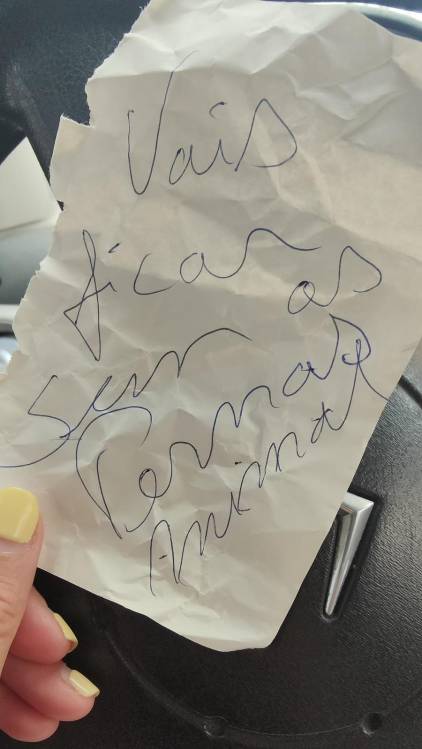 Vais
ficar
sem as
Pernas
Animal